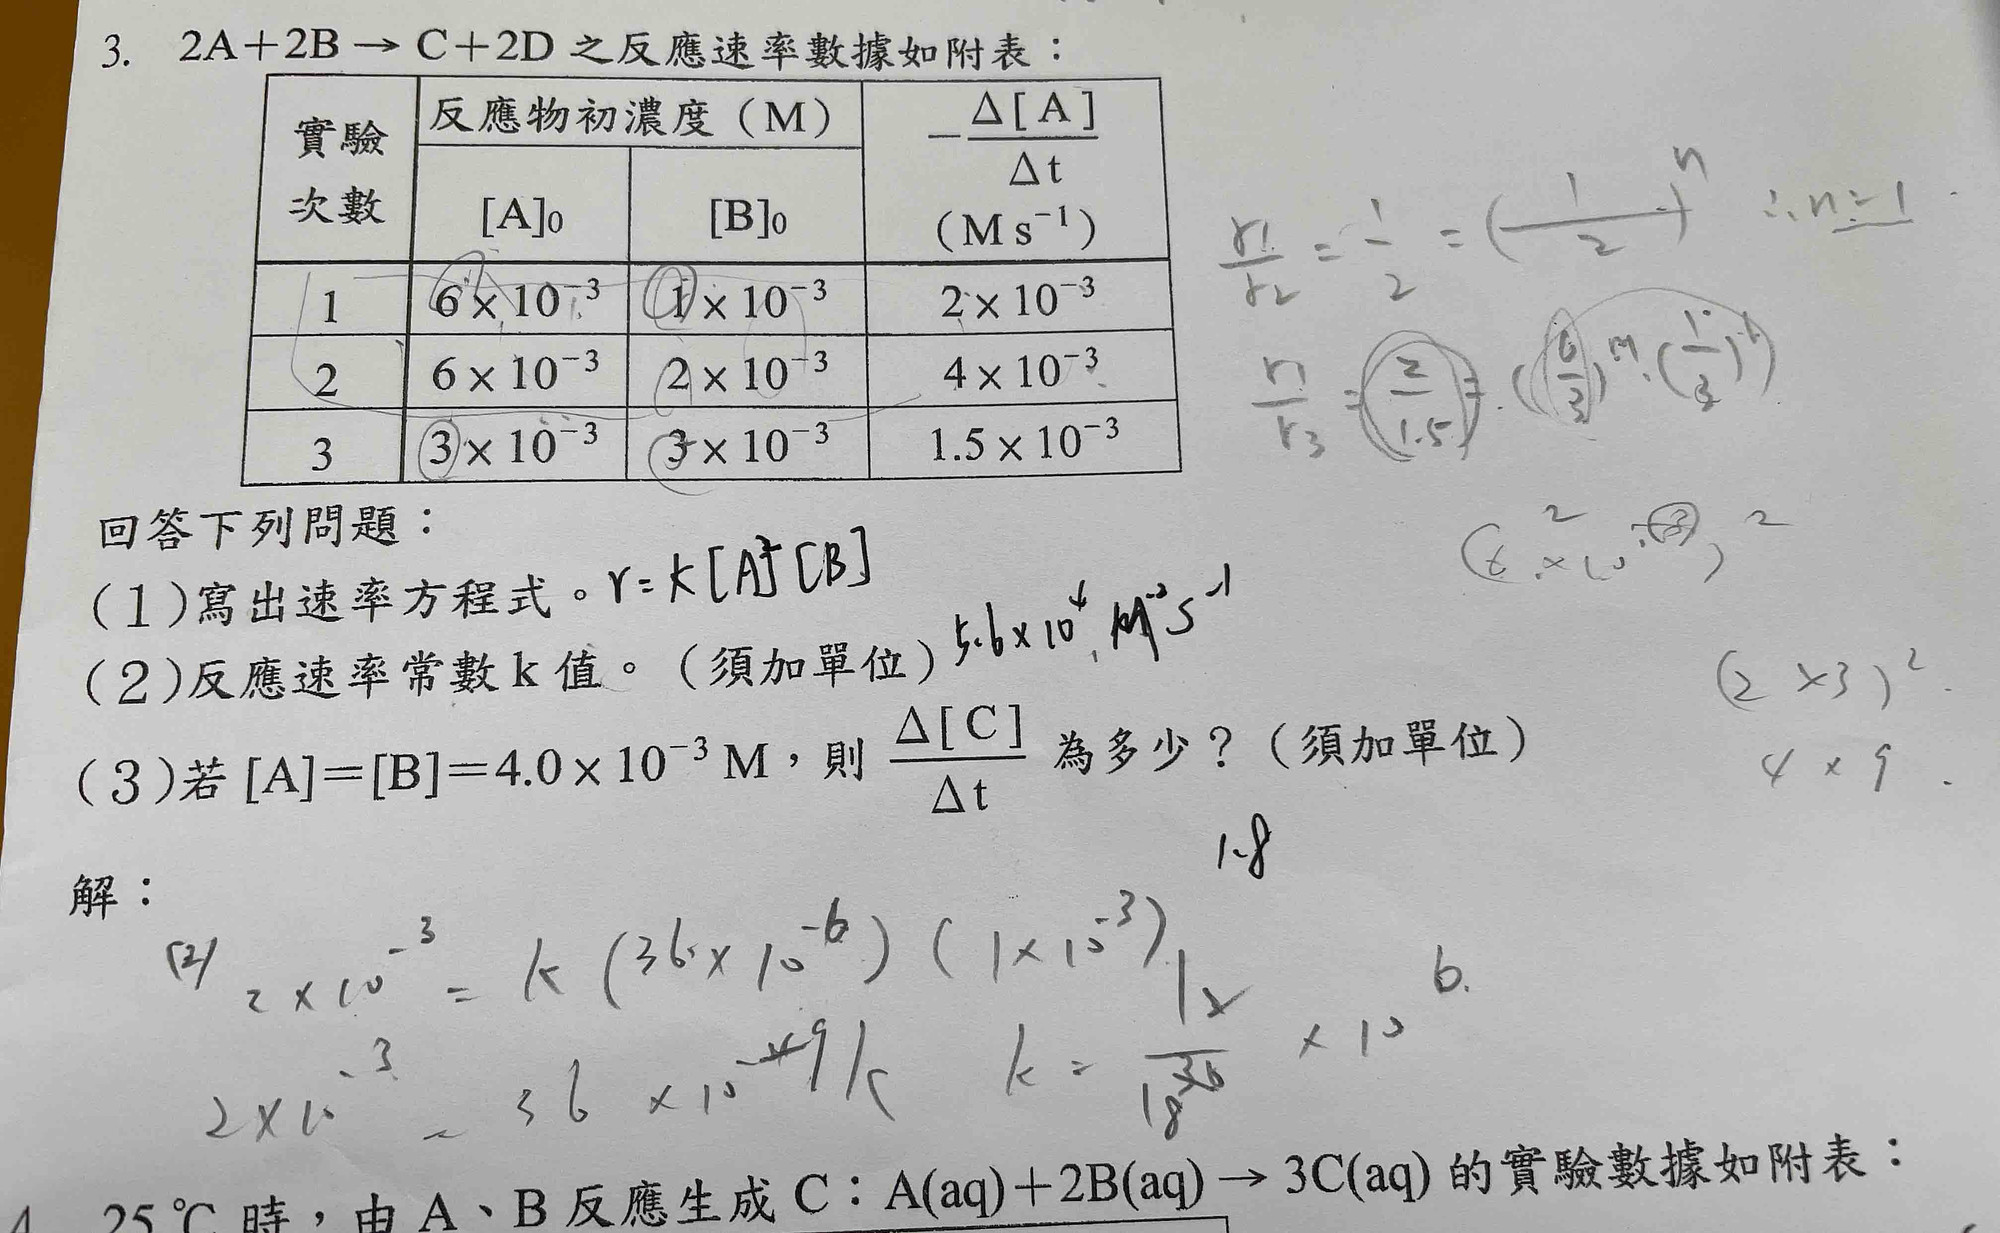 3. 2A+2B→C+2D 之反應速率數據如附表：
實驗次數 反應物初濃度（M） -Δ[A]/Δt (M s⁻¹)
[A]₀ [B]₀
1 6×10⁻³ 1×10⁻³ 2×10⁻³
2 6×10⁻³ 2×10⁻³ 4×10⁻³
3 3×10⁻³ 3×10⁻³ 1.5×10⁻³
r1/r2 = 1/2 = (1/2)ⁿ ∴n=1
r1/r3 = 2/1.5 = (6/3)ᵐ·(1/3)¹
回答下列問題：
(1)寫出速率方程式。r=k[A]²[B]
(2)反應速率常數k值。（須加單位）5.6×10⁴ M⁻²S⁻¹
(2×3)²
4×9
(3)若[A]=[B]=4.0×10⁻³ M，則 Δ[C]/Δt 為多少？（須加單位）
1.8
解：
(2) 2×10⁻³ = k(36×10⁻⁶)(1×10⁻³)
2×10⁻³ = 36×10⁻⁹k k= /18 ×10⁶
4. 25℃時，由A、B反應生成C：A(aq)+2B(aq)→3C(aq)的實驗數據如附表：